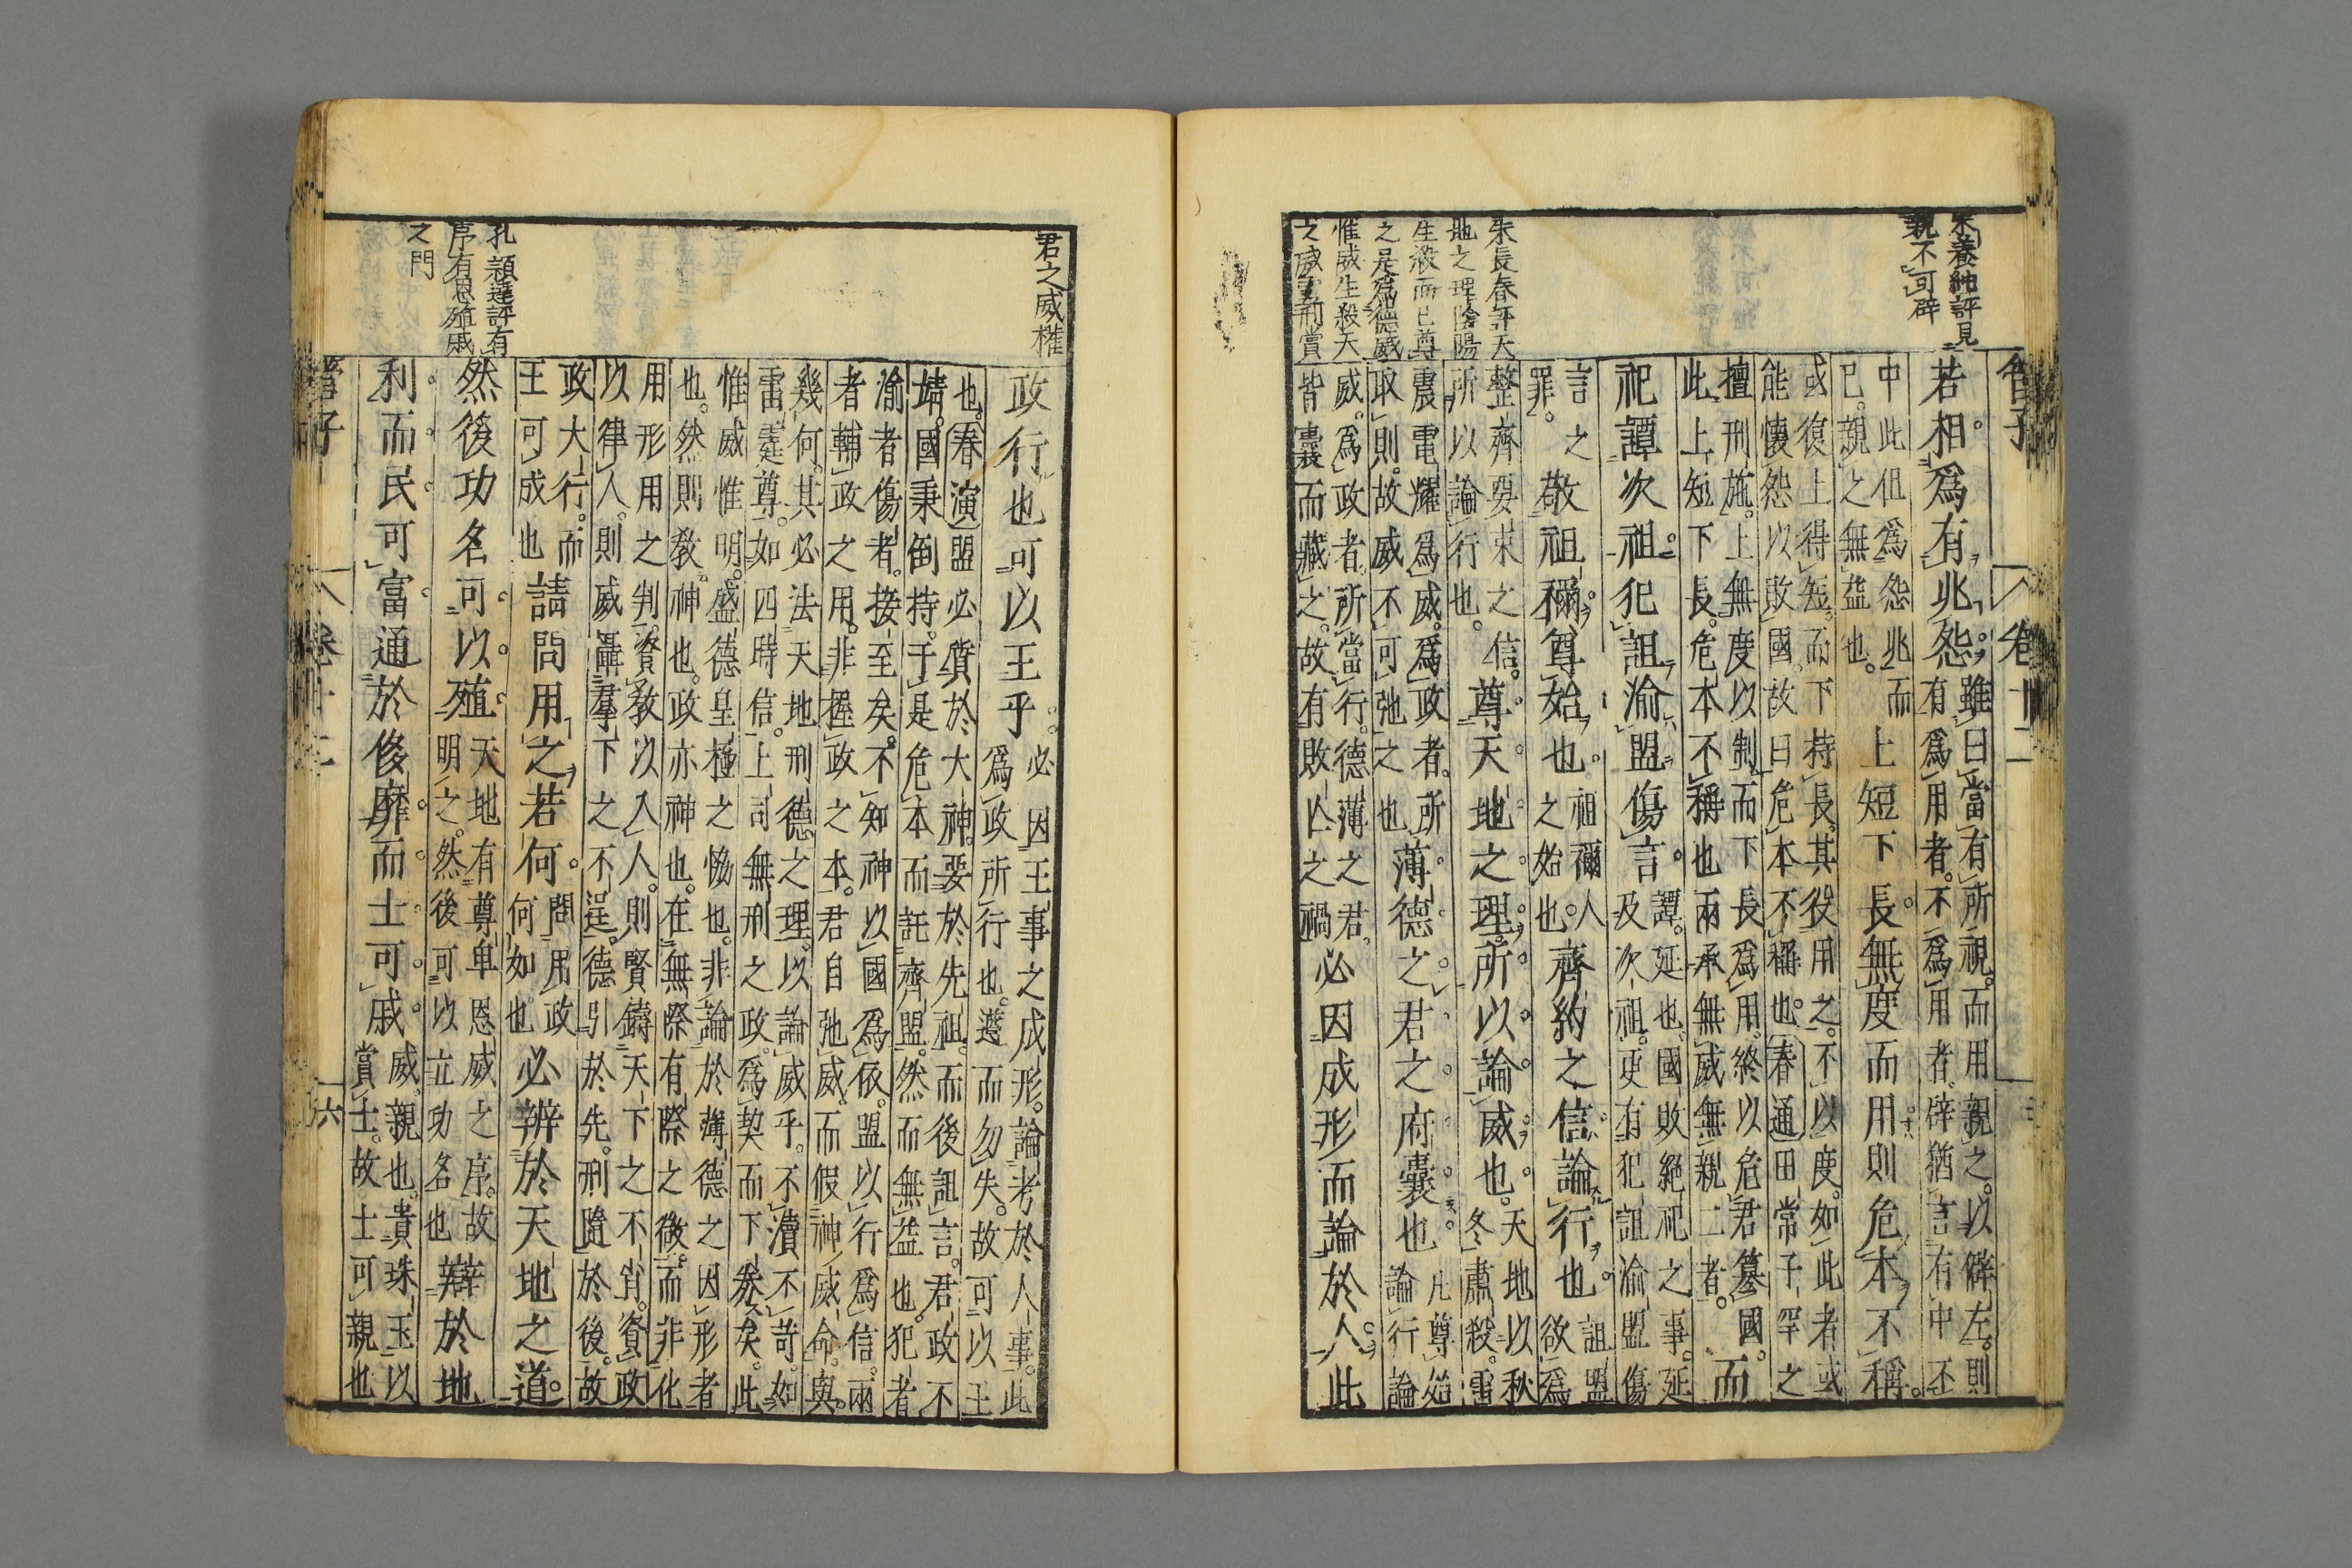 管子
卷十二
朱養純評見
親不可辟
若相爲有兆怨雖曰當有所視而用親之以僻左則
有爲用者不爲用者辟猶言有中丕
中此俎爲怨兆而
已親之無益也
上短下長無度而用則危本不稱
或復上得短而下持長其役用之不以度如此者或
能懐怨以敗國故曰危本不稱也春通田常子罕之
擅刑施上無度以制而下長爲用終以危君簒國而
此上短下長危本不稱也兩承無威無親二者
祀譚次祖犯詛渝盟傷言
譚延也國敗絕祀之事延
及次祖更有犯詛渝盟傷
言之
罪
敬祖禰尊始也
祖禰人
之始也
齊約之信論行也
詛盟
欲爲
朱長春評天
地之理陰陽
生殺而已尊
之是爲德威
惟威生殺天
整齊要束之信
所以論行也
尊天地之理所以論威也
天地以秋
冬肅殺雷
震電耀爲威爲政者所
取則故威不可弛之也
薄德之君之府囊也
凡尊始
論行論
威爲政者所當行德薄之君
皆囊而藏之故有敗亡之禍
必因成形而論於人此
君之威權
政行也可以王乎
必因王事之成形論考於人事此
爲政所行也遵而勿失故可以王
也春演盟必質於大神要於先祖而後詛言君政不
靖國秉倒持于是危本而託齊盟然而無益也犯者
渝者傷者接至矣不知神以國爲依盟以行爲信兩
者輔政之用非握政之本君自弛威而假神威命與
幾何其必法天地刑德之理以論威乎不瀆不苛如
雷霆尊如四時信上司無刑之政爲契而下券矣此
惟威惟明盛德皇極之恊也非論於薄德之因形者
也然則敎神也政亦神也在無際有際之徵而非化
用形用之判資敎以入人則賢鑄天下之不肖資政
以律人則威讋羣下之不逞德引於先刑隨於後故
政大行而
王可成也
請問用之若何
問用政
何如也
必辨於天地之道
孔頴達評有
序有恩殖戚
之門
然後功名可以殖
天地有尊卑恩威之序故
明之然後可以立功名也
辯於地
利而民可富通於侈靡而士可戚
威親也貴珠玉以
賞士故士可親也
管子
卷十二
六